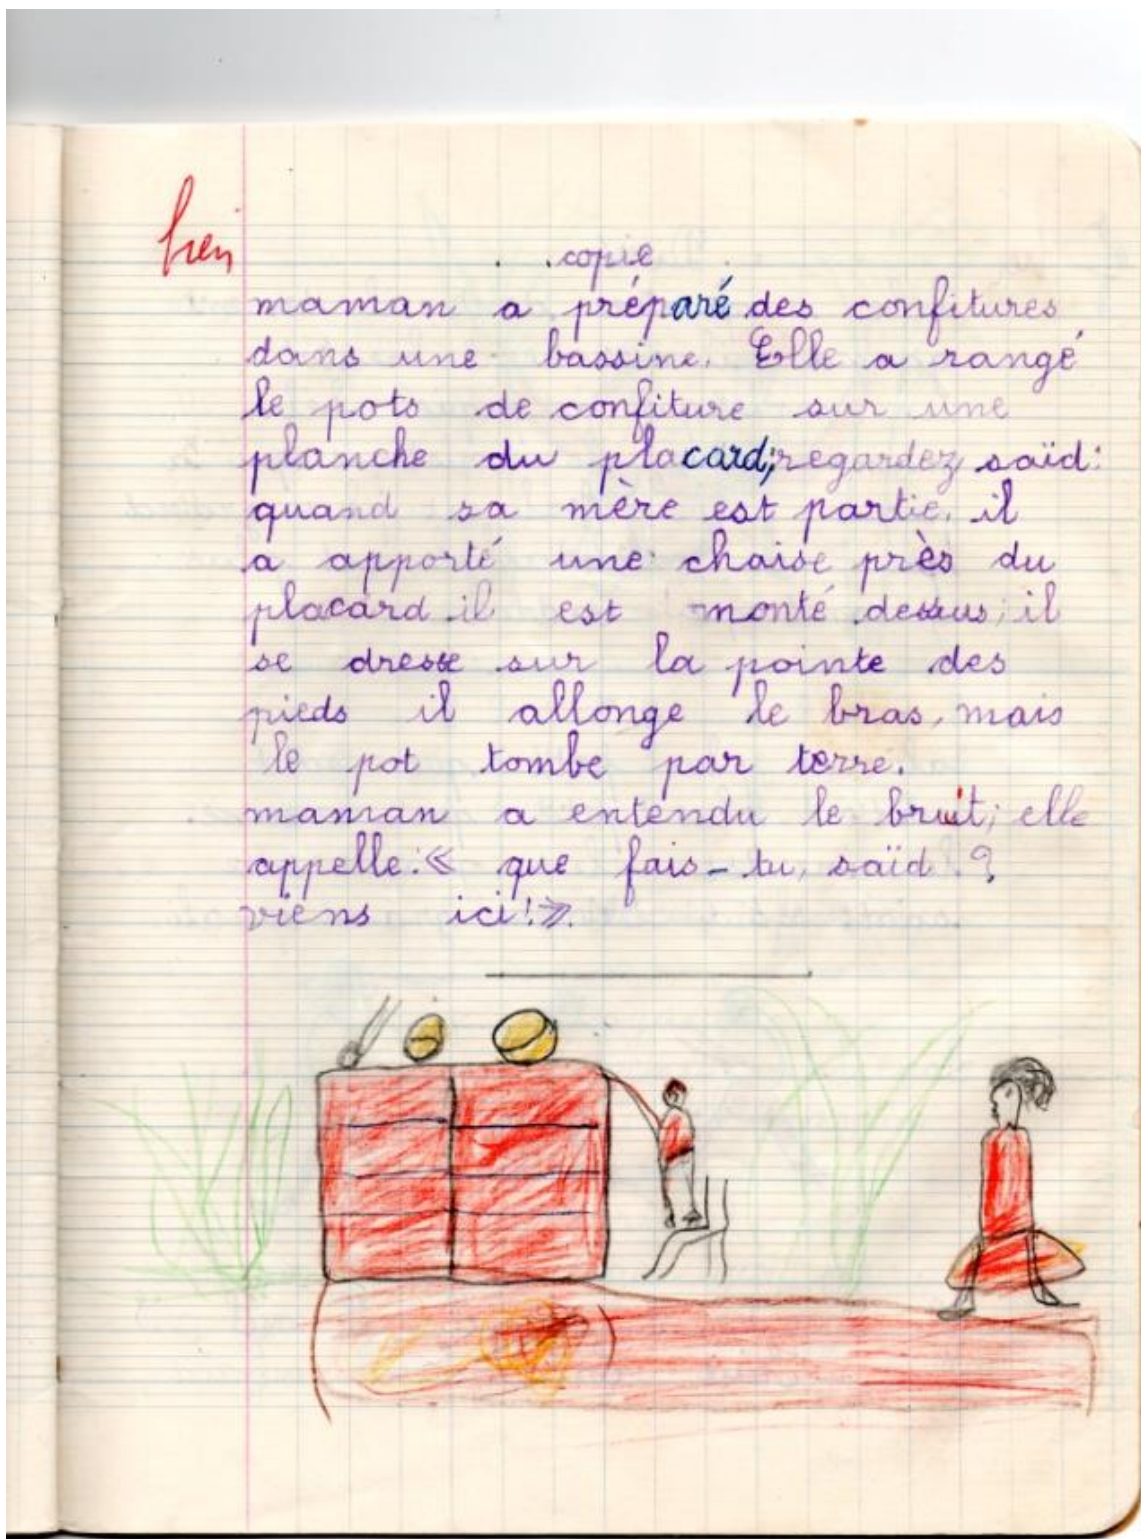 bien
copie
maman a préparé des confitures
dans une bassine. Elle a rangé
le pots de confiture sur une
planche du placard; regardez saïd:
quand sa mère est partie. il
a apporté une chaise près du
placard il est monté dessus; il
se dresse sur la pointe des
pieds il allonge le bras, mais
le pot tombe par terre.
maman a entendu le bruit; elle
appelle: « que fais-tu, saïd ?
viens ici! ».